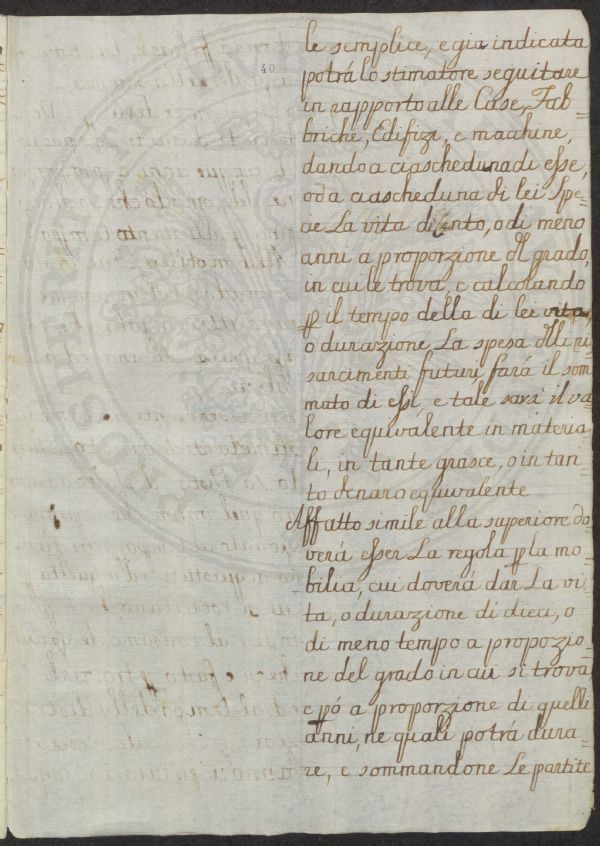 40
le semplice, e gia indicata
potrá lo stimatore seguitare
in rapporto alle Case, Fab-
briche, Edifizi, e macchine,
dando a ciascheduna di esse,
od a ciascheduna di lei Spe-
cie La vita di Cento, o di meno
anni a proporzione del grado,
in cui le trova, e calcolando
p il tempo della di lei vita,
o durazione La spesa delli ri-
sarcimenti futuri, fará il som-
mato di essi, e tale sará il va-
lore equivalente in materia-
li, in tante grasce, o in tan-
to denaro equivalente
Affatto simile alla superiore do-
verá esser La regola p la mo-
bilia, cui doverá dar La vi-
ta, o durazione di dieci, o
di meno tempo a propozio-
ne del grado in cui si trova
e pó a proporzione di quelli
anni, ne quali potrá dura-
re, e sommandone Le partite